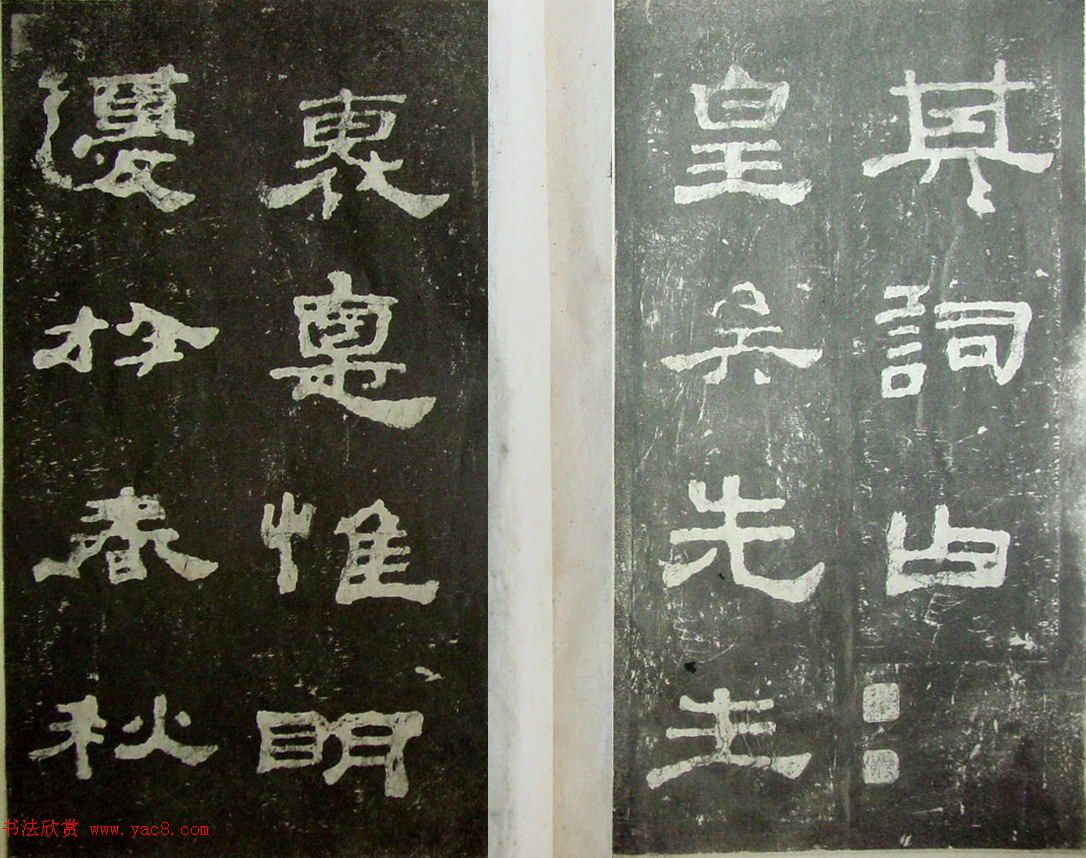 其詞曰
皇矣先生
褱悳惟明
優於春秋
书法欣赏 www.yac8.com